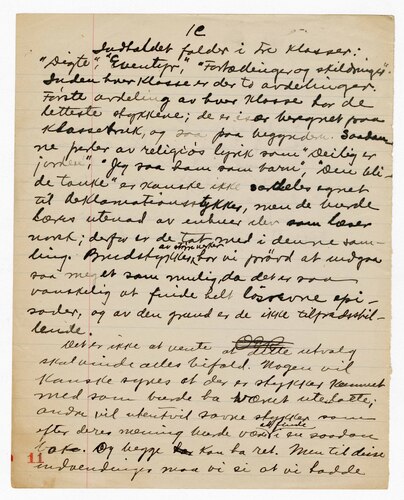 10
Indholdet falder i tre klasser:
"Digte", "Eventyr", "Fortællinger og skildringer".
Inden hver klasse er der to avdelinger.
Første avdeling av hver klasse har de
letteste stykkene; de er især beregnet paa
klassebruk, og saa paa begyndere. Saadan
ne perler av religiøs lyrik som "Deilig er
jorden", "Jeg saa ham som barn", "Den bli-
de tanke" er kanske ikke saa egnet
til deklamationsstykker, men de burde
læres utenad av enhver elev som læser
norsk; derfor er de tat med i denne sam-
ling. Brudstykker av større verker har vi prøvd at undgaa
saa meget som mulig, da det er saa
vanskelig at finde helt løsrevne epi-
soder, og av den grund er de ikke tilfredsstil-
lende.
Det er ikke at vente at dette utvalg
skal vinde alles bifald. Nogen vil
kanske synes at der er stykker kommet
med som burde ha været utelatt;
andre vil utentvil savne stykker som
efter deres mening burde være at finde i en saadan
bok. Og begge kan ha ret. Men til disse
11 indvendinger maa vi si at vi hadde